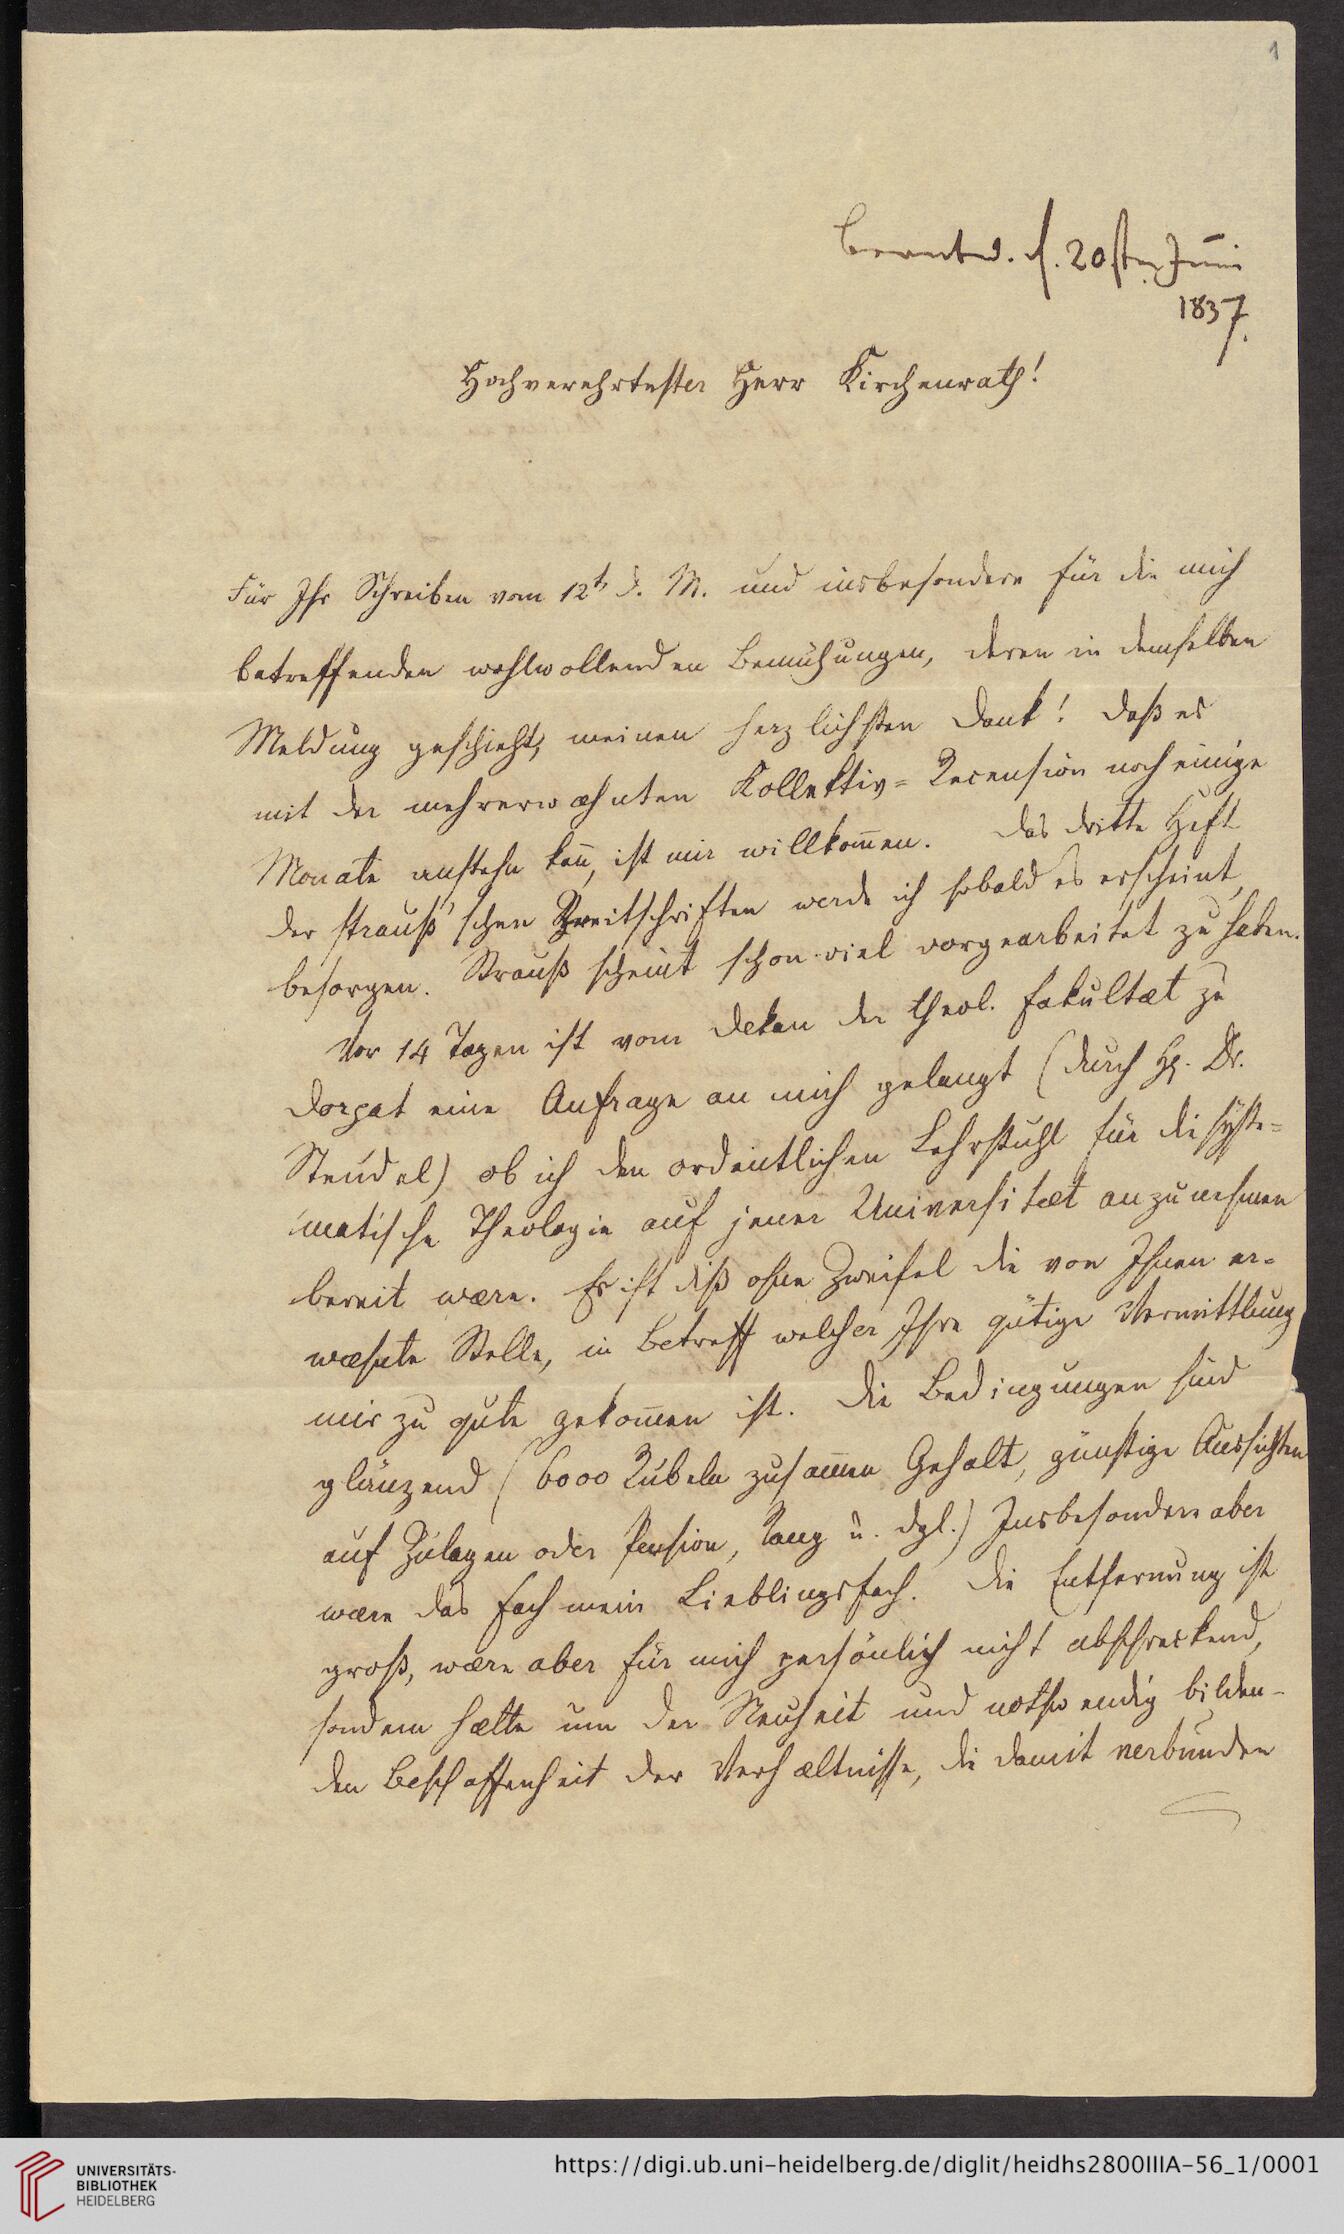 1
beantw. d. 20sten Juni
1837.
Hochverehrtester Herr Kirchenrath!
Für Ihr Schreiben vom 12t. d. M. und insbesondere für die mich
betreffenden wohlwollenden Bemühungen, deren in demselben
Meldung geschieht, meinen herzlichsten Dank! Daß es
mit der mehrerwæhnten Kollektiv=Recension noch einige
Monate anstehn kan̄, ist mir willkom̄en. Das dritte Heft
der strauß'schen Streitschriften werde ich sobald es erscheint,
besorgen. Strauß scheint schon viel vorgearbeitet zu haben.
Vor 14 Tagen ist vom Dekan der theol. Fakultæt zu
Dorpat eine Anfrage an mich gelangt (durch H. Dr.
Steudel) ob ich den ordentlichen Lehrstuhl für die syste=
matische Theologie auf jener Universitæt anzunehmen
bereit wære. Es ist diß ohne Zweifel die von Ihnen er=
wæhnte Stelle, in Betreff welcher Ihre gütige Vermittlung
mir zu gute gekom̄en ist. Die Bedingungen sind
glänzend (6000 Rubeln zusam̄en Gehalt, günstige Aussichten
auf Zulagen oder Pension, Rang u. dgl.) Insbesondere aber
wære das Fach mein Lieblingsfach. Die Entfernung ist
groß, wære aber für mich persönlich nicht abschreckend,
sondern hætte um der Neuheit und nothwendig bilden-
den Beschaffenheit der Verhæltnisse, die damit verbunden
UNIVERSITÄTS-
BIBLIOTHEK
HEIDELBERG
https://digi.ub.uni-heidelberg.de/diglit/heidhs2800IIIA-56_1/0001